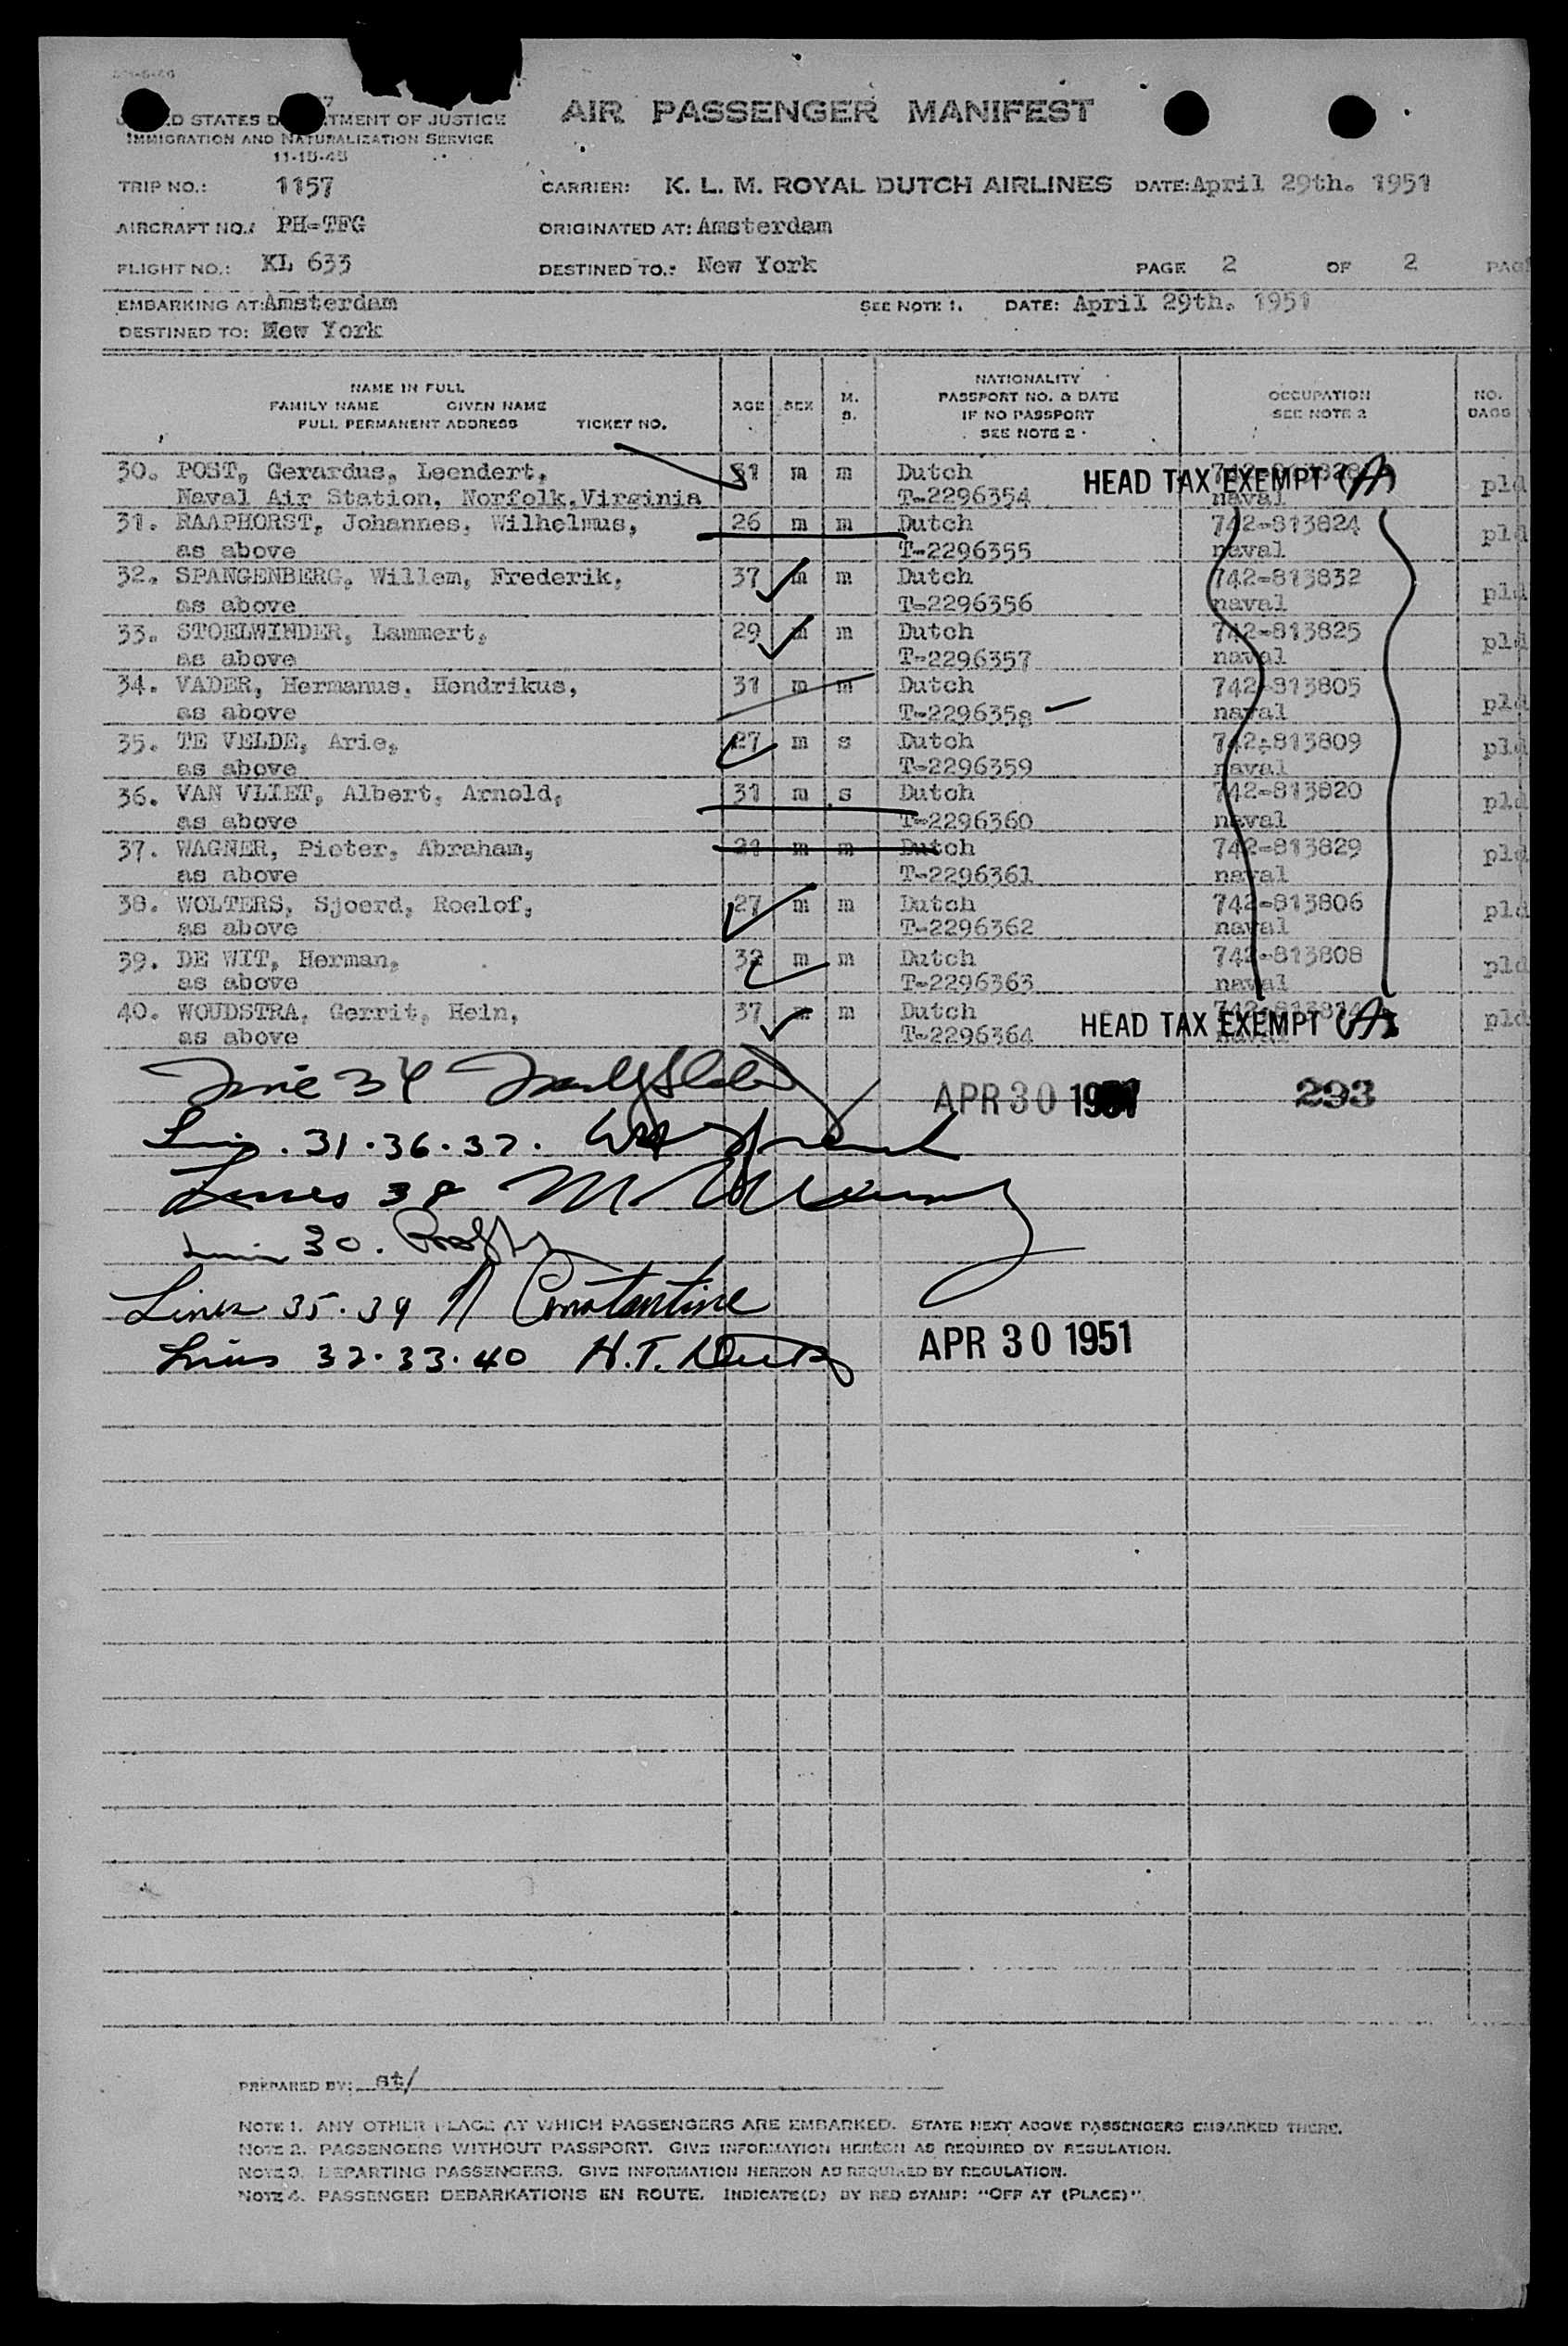 AIR PASSENGER MANIFEST
STATES DEPARTMENT OF JUSTICE
IMMIGRATION AND NATURALIZATION SERVICE
11-15-45
TRIP NO.: 1157 CARRIER: K. L. M. ROYAL DUTCH AIRLINES DATE: April 29th. 1951
AIRCRAFT NO.: PH-TFG ORIGINATED AT: Amsterdam
FLIGHT NO.: KL 633 DESTINED TO.: New York PAGE 2 OF 2
EMBARKING AT: Amsterdam SEE NOTE 1. DATE: April 29th. 1951
DESTINED TO: New York
NAME IN FULL
FAMILY NAME GIVEN NAME
FULL PERMANENT ADDRESS TICKET NO.
AGE SEX M. S.
NATIONALITY
PASSPORT NO. & DATE
IF NO PASSPORT
SEE NOTE 2
OCCUPATION
SEE NOTE 2
NO.
BAGS
30. POST, Gerardus, Leendert, 31 m m Dutch
Naval Air Station, Norfolk, Virginia T-2296354 HEAD TAX EXEMPT (A) naval pld
31. RAAPHORST, Johannes, Wilhelmus, 26 m m Dutch 742-813824
as above T-2296355 naval pld
32. SPANGENBERG, Willem, Frederik, 37 m m Dutch 742-813832
as above T-2296356 naval pld
33. STOELWINDER, Lammert, 29 m m Dutch 742-813825
as above T-2296357 naval pld
34. VADER, Hermanus, Hendrikus, 31 m m Dutch 742-813805
as above T-2296358 naval pld
35. TE VELDE, Arie, 27 m s Dutch 742-813809
as above T-2296359 naval pld
36. VAN VLIET, Albert, Arnold, 31 m s Dutch 742-813820
as above T-2296360 naval pld
37. WAGNER, Pieter, Abraham, 21 m m Dutch 742-813829
as above T-2296361 naval pld
38. WOLTERS, Sjoerd, Roelof, 27 m m Dutch 742-813806
as above T-2296362 naval pld
39. DE WIT, Herman, 32 m m Dutch 742-813808
as above T-2296363 naval pld
40. WOUDSTRA, Gerrit, Hein, 37 m m Dutch
as above T-2296364 HEAD TAX EXEMPT (A) pld
Line 34
APR 30 1951 293
31.36.37.
Lines 38
30.
Lines 35.39 Constantine
Lines 32.33.40 H.T.
APR 30 1951
PREPARED BY: st/
NOTE 1. ANY OTHER PLACE AT WHICH PASSENGERS ARE EMBARKED. STATE NEXT ABOVE PASSENGERS EMBARKED THERE.
NOTE 2. PASSENGERS WITHOUT PASSPORT. GIVE INFORMATION HEREON AS REQUIRED BY REGULATION.
NOTE 3. DEPARTING PASSENGERS. GIVE INFORMATION HEREON AS REQUIRED BY REGULATION.
NOTE 4. PASSENGER DEBARKATIONS EN ROUTE. INDICATE(D) BY RED STAMP: "OFF AT (PLACE)".